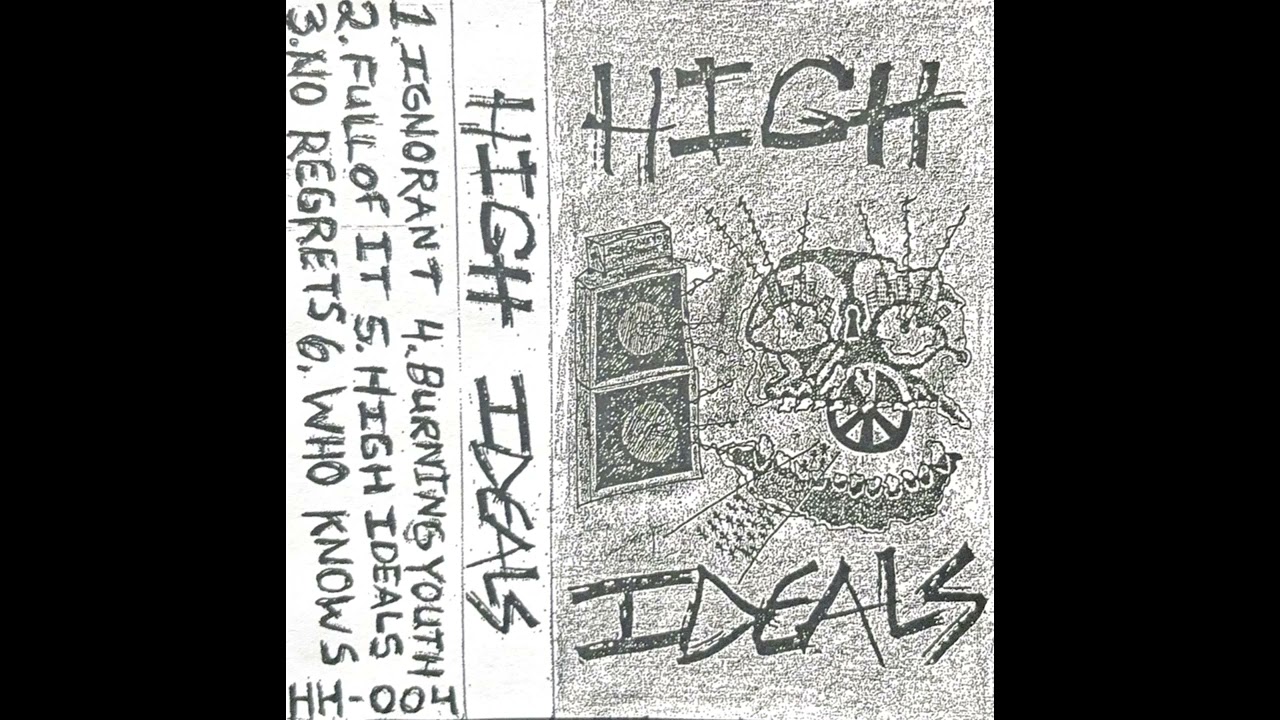 HIGH
IDEALS
HIGH IDEALS
1. IGNORANT 4. BURNING YOUTH
2. FULL OF IT 5. HIGH IDEALS
3. NO REGRETS 6. WHO KNOWS
HI-004